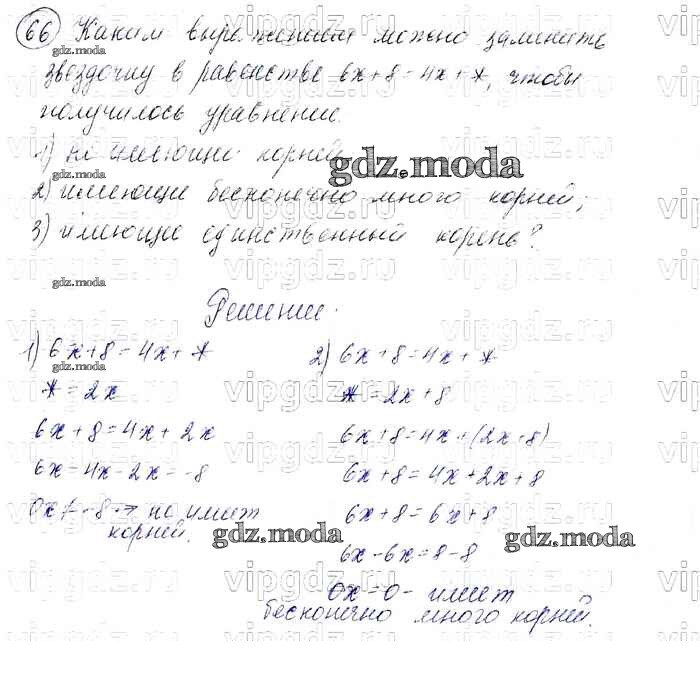 66 Каким выражением можно заменить
звездочку в равенстве 6x+8=4x+*, чтобы
получилось уравнение.
1) не имеющие корней
2) имеющие бесконечно много корней;
3) имеющее единственный корень?
Решение.
1) 6x+8=4x+*
* = 2x
6x+8=4x+2x
6x-4x-2x=-8
0x≠-8 → не имеет
корней.
2) 6x+8=4x+*
* = 2x+8
6x+8=4x+(2x+8)
6x+8=4x+2x+8
6x+8=6x+8
6x-6x=8-8
0x=0- имеет
бесконечно много корней.
gdz.moda
gdz.moda
gdz.moda
gdz.moda
gdz.moda
gdz.moda
gdz.moda
vipgdz.ru